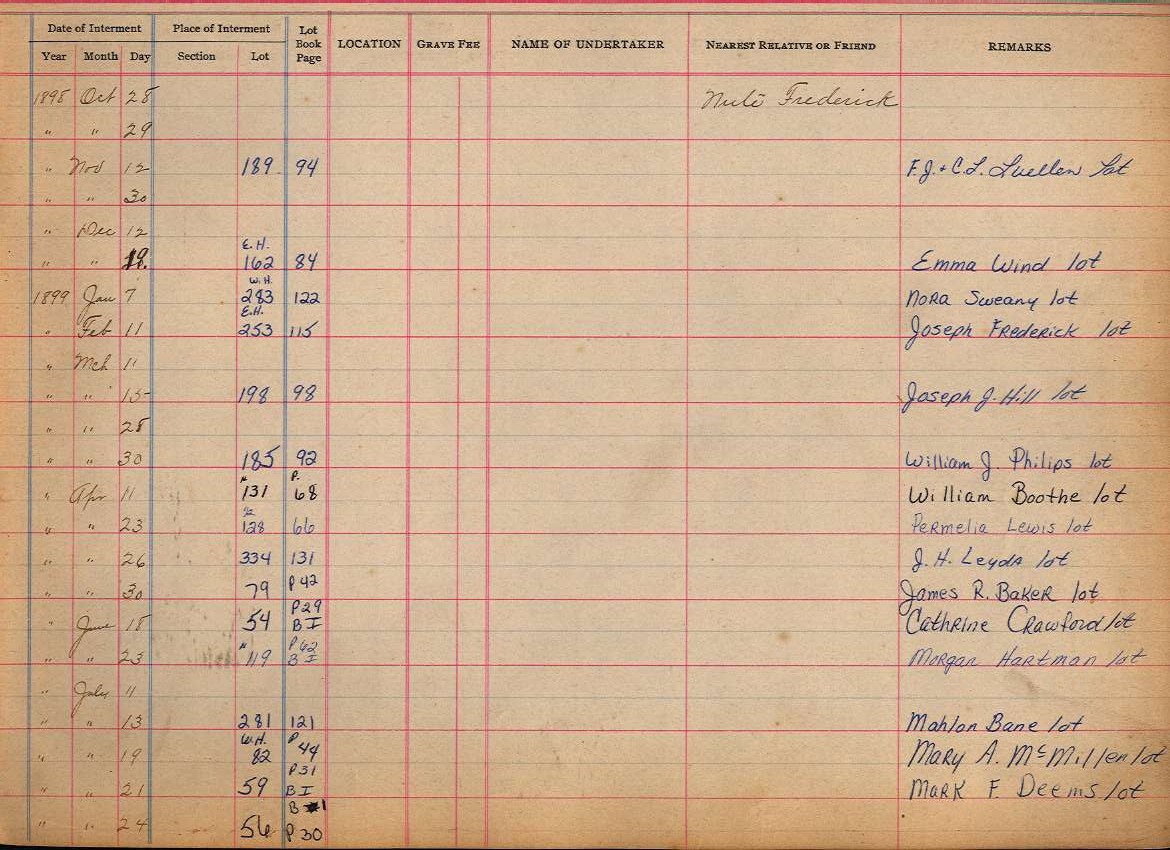 Date of Interment Place of Interment Lot Book Page LOCATION GRAVE FEE NAME OF UNDERTAKER NEAREST RELATIVE OR FRIEND REMARKS
Year Month Day Section Lot
1898 Oct 28 Frederick
" " 29
" Nov 12 189 94 F.J. + C.L. Luellen lot
" " 30
" Dec 12
E.H.
" " 19. 162 84 Emma Wind lot
W.H.
1899 Jan 7 283 122 Nora Sweany lot
E.H.
" Feb 11 253 115 Joseph Frederick lot
" Mch 11
" " 15 198 98 Joseph J. Hill lot
" " 28
" " 30 185 92 William J. Philips lot
" P.
" Apr 11 131 68 William Boothe lot
" " 23 128 66 Permelia Lewis lot
" " 26 334 131 J.H. Leyda lot
" " 30 79 P 42 James R. Baker lot
P 29
" June 18 54 B I Cathrine Crawford lot
" P 62
" " 23 119 B I Morgan Hartman lot
" July 11
" " 13 281 121 Mahlon Bane lot
W.H. P
" " 19 82 44 Mary A. McMillen lot
P 31
" " 21 59 B I Mark F. Deems lot
B 1
" " 24 56 P 30